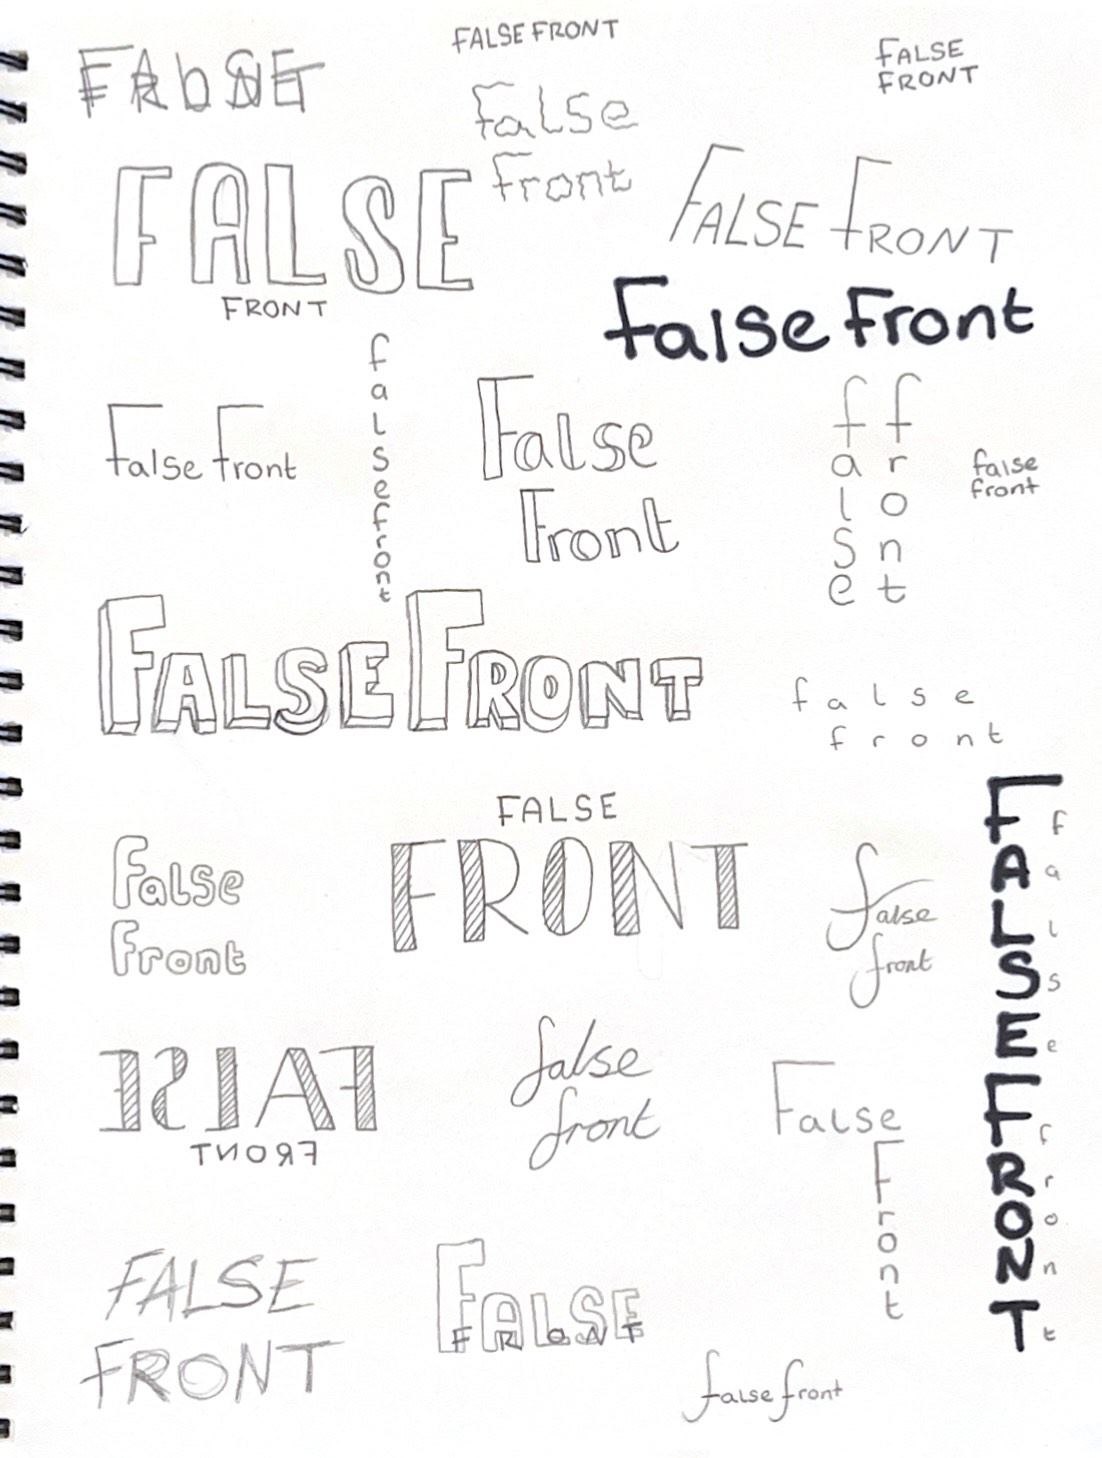 FALSE
FRONT
FALSE FRONT
FALSE
FRONT
False
Front
FALSE
FRONT
FALSE FRONT
False Front
falsefront
False Front
False
Front
false
front
false
front
FALSE FRONT
false
front
FALSE
FRONT
False
Front
false
front
FALSE FRONT
false front
FALSE
FRONT
false
front
False
Front
FALSE
FRONT
FALSE
FRONT
false front